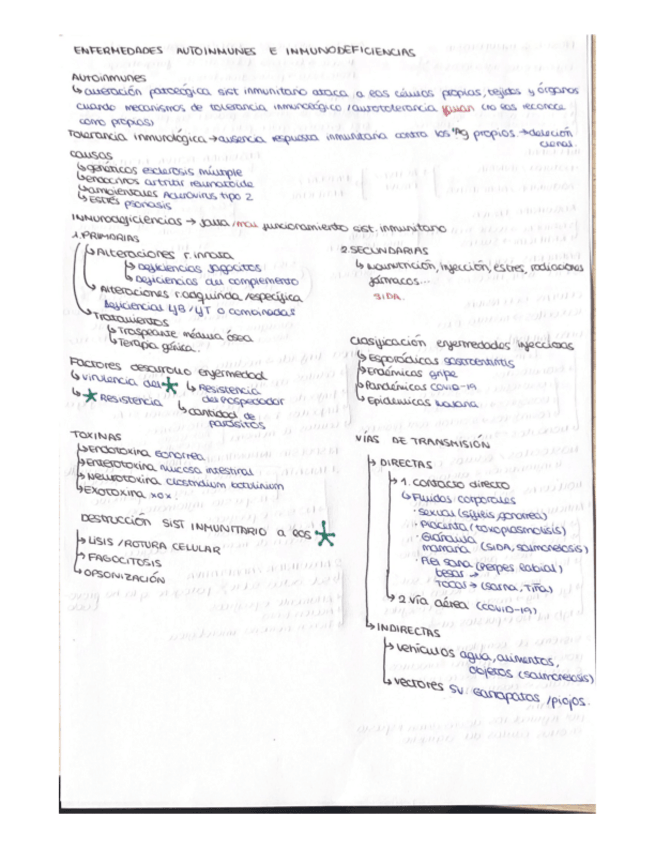 ENFERMEDADES AUTOINMUNES E INMUNODEFICIENCIAS
AUTOINMUNES
↳ alteración patológica sist inmunitario ataca a las células propias, tejidos y órganos
cuando mecanismos de tolerancia inmunológico/autotolerancia fallan (no las reconoce
como propias)
Tolerancia inmunológica → ausencia respuesta inmunitaria contra los Ag propios → deleción
clonal.
CAUSAS
↳ genéticos esclerosis múltiple
↳ endocrinos artritis reumatoide
↳ ambientales tipo 2
↳ Estrés psoriasis
INMUNODEFICIENCIAS → falta/mal funcionamiento sist. inmunitario
1. PRIMARIAS
↳ Alteraciones r. innata
↳ Deficiencias fagocitos
↳ Deficiencias del complemento
↳ Alteraciones r. adquirida/específica
Deficiencias LB/LT o combinadas
↳ Tratamientos
↳ Trasplante médula ósea
↳ Terapia génica.
2. SECUNDARIAS
↳ Malnutrición, infección, estrés, radiaciones
fármacos...
SIDA.
FACTORES desarrollo enfermedad
↳ Virulencia del *
↳ * Resistencia
↳ Resistencia
del hospedador
↳ cantidad de
parásitos
Clasificación enfermedades infecciosas
↳ Esporádicas gastroenteritis
↳ Endémicas gripe
↳ Pandémicas COVID-19
↳ Epidémicas
TOXINAS
↳ Endotoxina Gonorrea
↳ Enterotoxina mucosa intestinal
↳ Neurotoxina Clostridium botulinum
↳ Exotoxina xox
DESTRUCCIÓN SIST INMUNITARIO a los *
↳ LISIS / ROTURA CELULAR
↳ FAGOCITOSIS
↳ OPSONIZACIÓN
VÍAS DE TRANSMISIÓN
↳ DIRECTAS
↳ 1. contacto directo
↳ Fluidos corporales
· sexual (sífilis, gonorrea)
· Placenta (toxoplasmosis)
· Glándula
mamaria (SIDA, salmonelosis)
· Piel sana (herpes labial)
besar →
Tocar → (sarna, Tiña)
↳ 2 Vía aérea (COVID-19)
↳ INDIRECTAS
↳ vehículos agua, alimentos,
objetos (salmonelosis)
↳ vectores SV garrapatas / piojos.